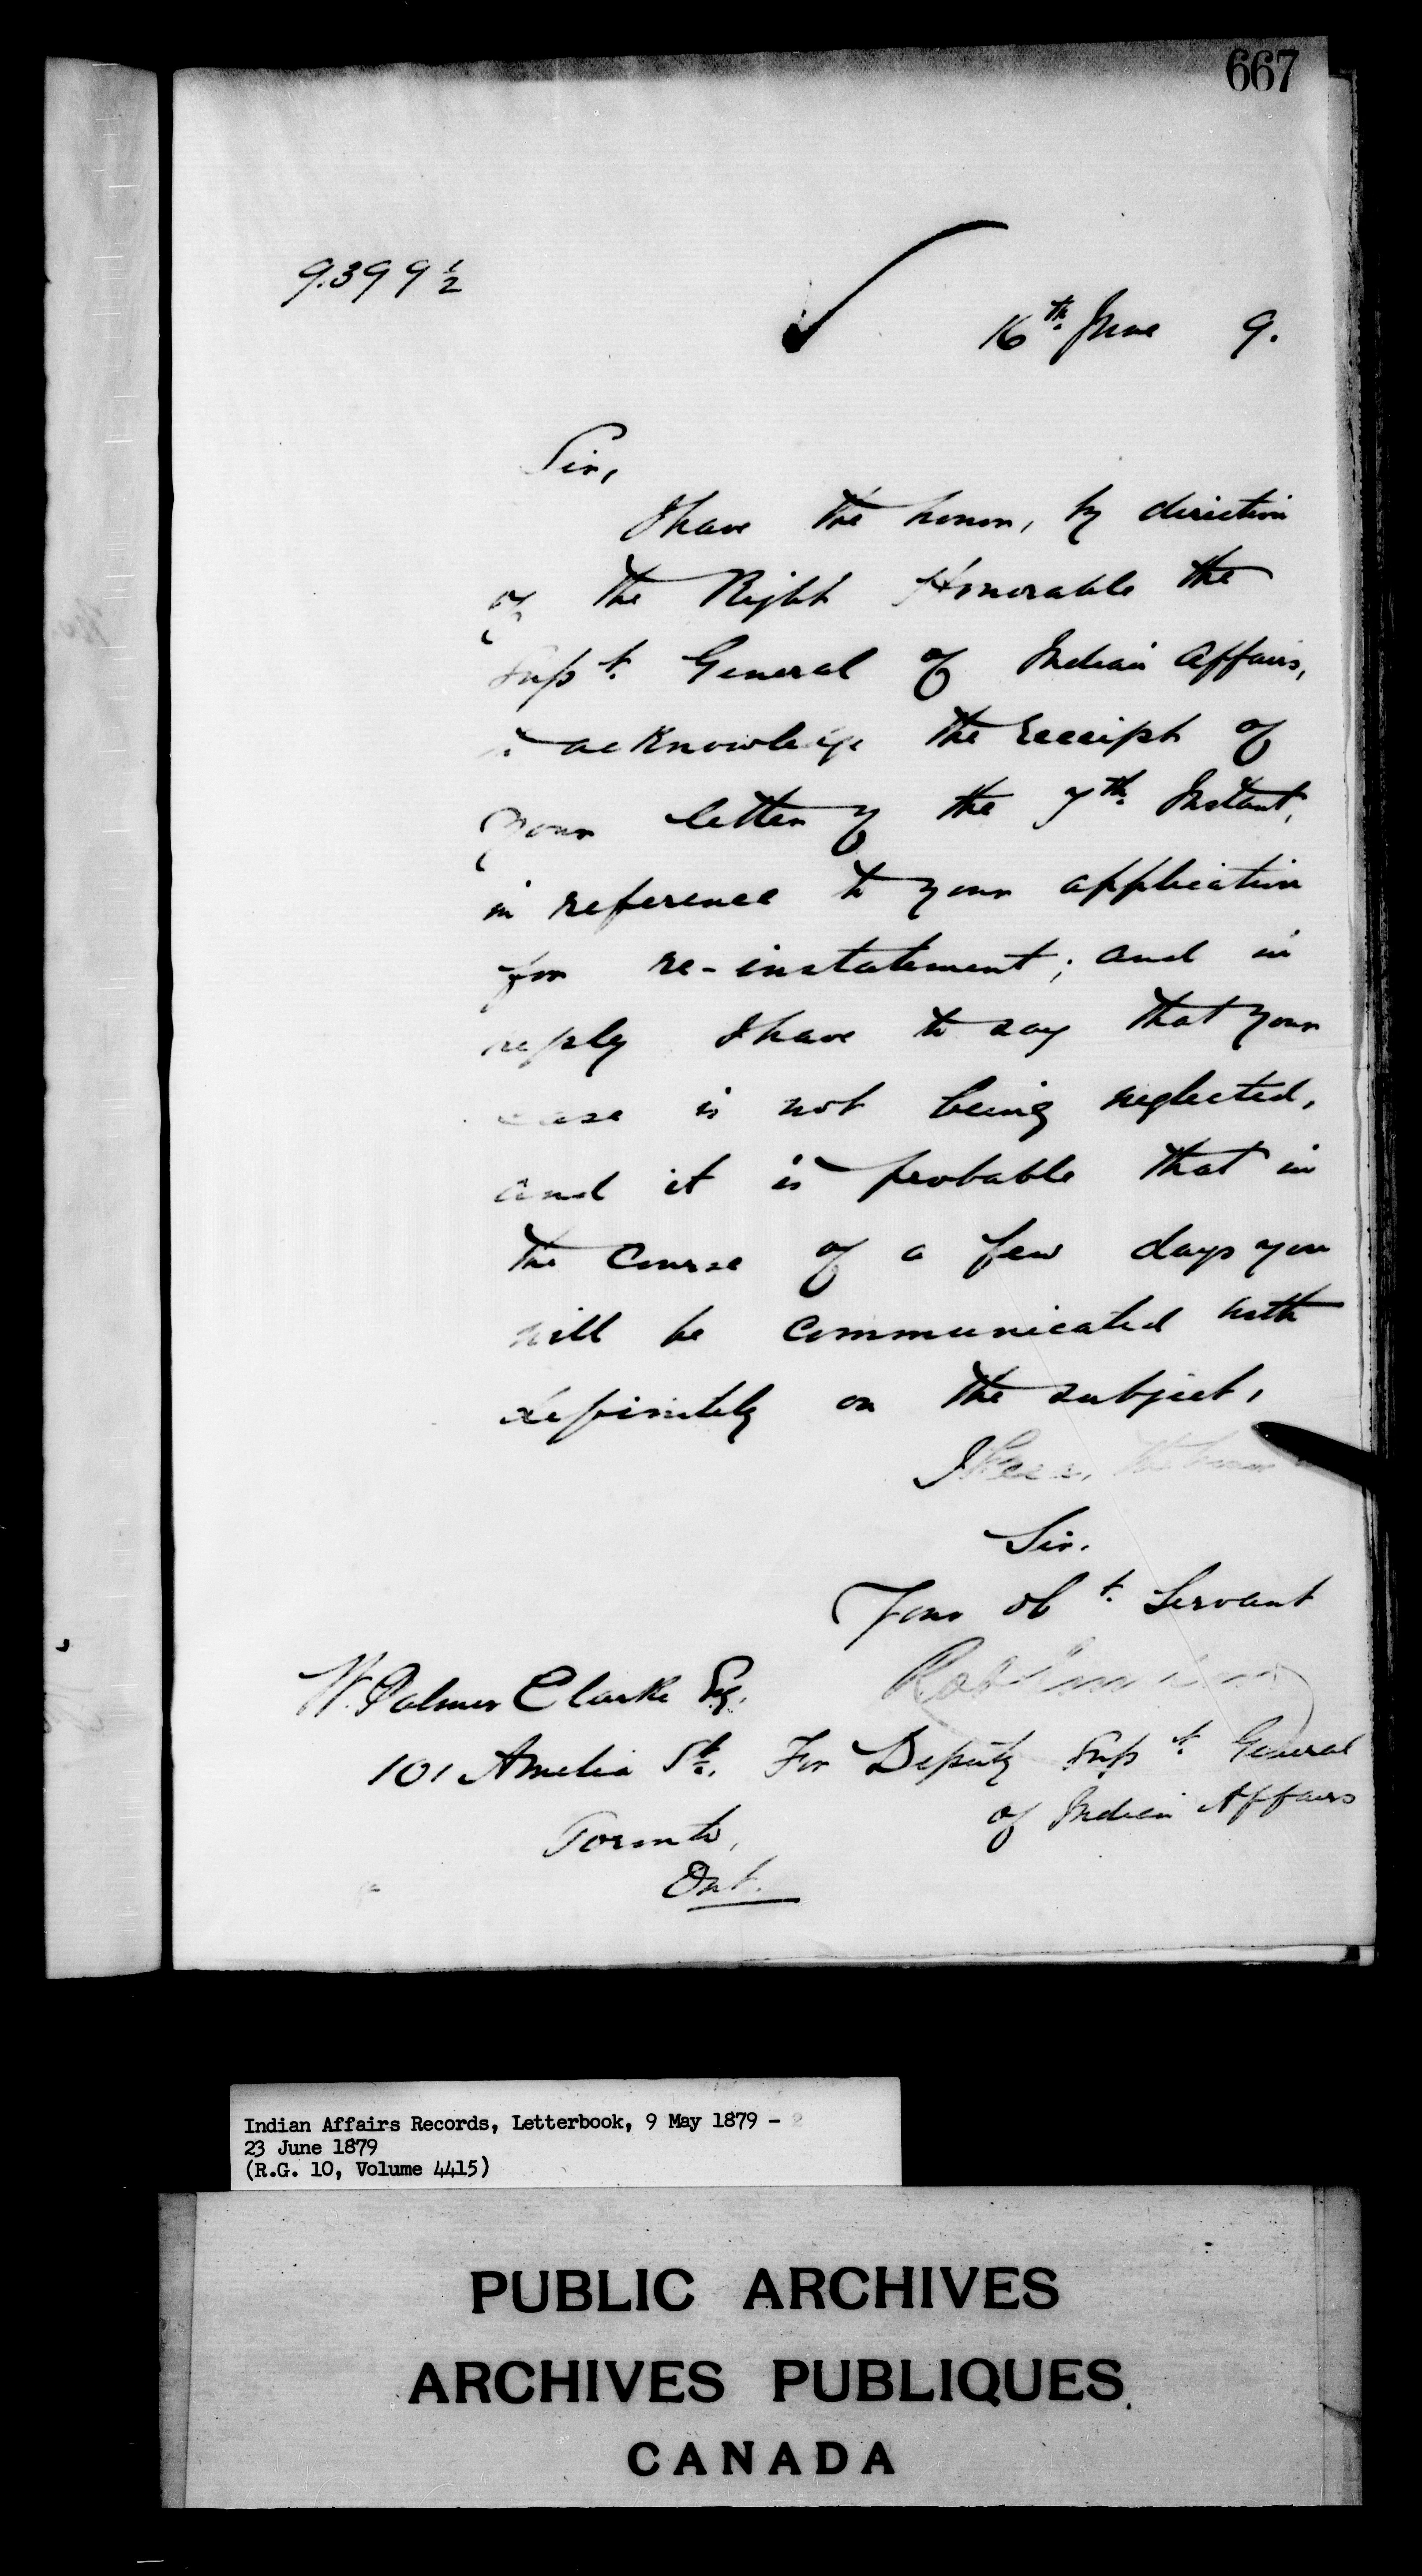 667
9.399 ½
16th June 9.
Sir,
I have the honor, by direction
of the Right Honorable the
Supt. General of Indian Affairs,
acknowledge the receipt of
your letter of the 7th. Instant,
in reference to your application
for re-instatement; and in
reply I have to say that your
case is not being neglected,
and it is probable that in
the course of a few days you
will be communicated with
definitely on the subject,
I
Sir.
Your Obt. Servant
W. Palmer Clarke Esq.
101 Amelia St. For Deputy Supt. General
of Indian Affairs
Toronto,
Ont.
Indian Affairs Records, Letterbook, 9 May 1879 -
23 June 1879
(R.G. 10, Volume 4415)
PUBLIC ARCHIVES
ARCHIVES PUBLIQUES
CANADA